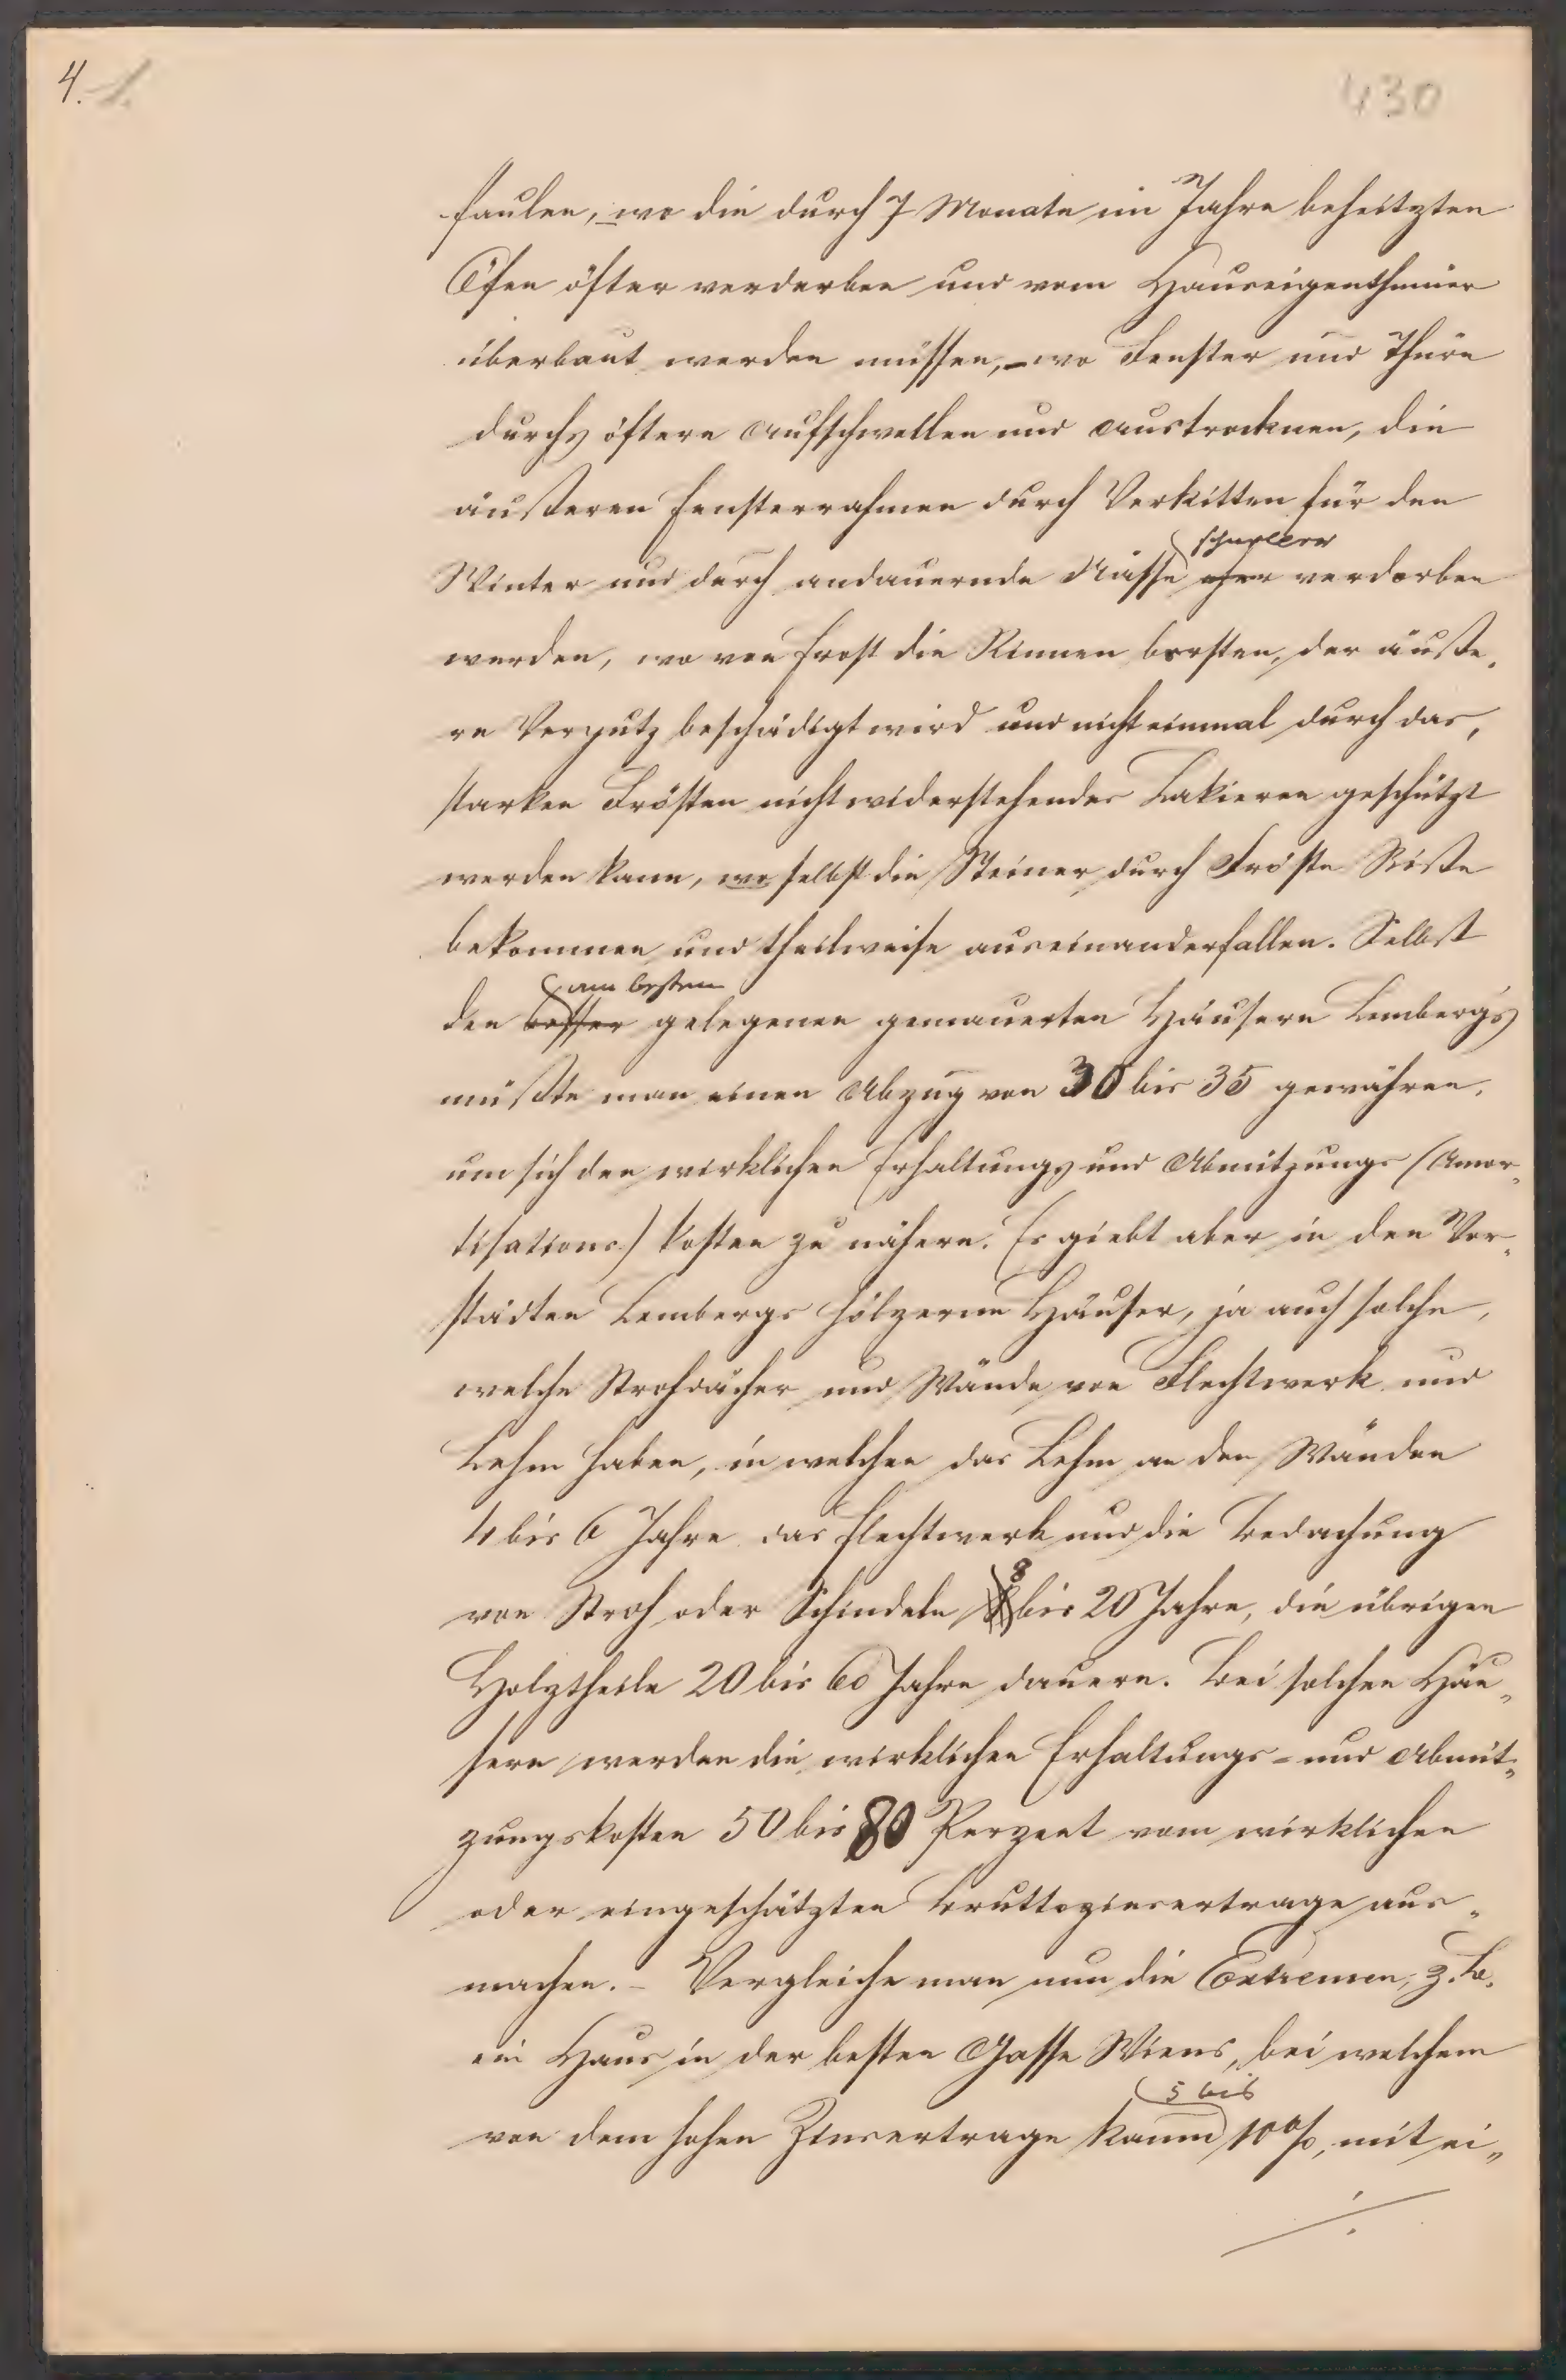 4. 1.
430
faulen, wo die durch 7 Monate im Jahre beheitzten
Öfen öfter verderben und vom Hauseigenthümer
überbaut werden müssen, – wo Fenster und Thüre
durchs öftere Aufschwellen und Austrocknen, die
äußeren Fensterrahmen durch Verkitten für den
schneller
Winter und durch andauernde Nässe eher verdorben
werden, wo von Frost die Rinnen borsten, der äuße„
re Verputz beschädigt wird und nicht einmal durch das,
starken Frösten nicht widerstehendes Lakieren geschützt
werden kann, wo selbst die Steiner durch Fröste Riße
bekommen und theilweise auseinanderfallen. Selbst
am besten
den besser gelegenen gemauerten Häusern Lemberg's
müßte man einen Abzug von 30 bis 35 gewähren,
um sich den wirklichen Erhaltungs und Abnützungs (Amor„
tisations) kosten zu nähern. Es giebt aber in den Vor„
städten Lembergs hölzerne Häuser, ja auch solche,
welche Strohdächer und Wände von Flechtwerk und
Lehm haben, in welchen das Lehm an den Wänden
4 bis 6 Jahre das Flechtwerk und die Bedachung
8
von Stroh oder Schindeln bis 20 Jahre, die übrigen
Holztheile 20 bis 60 Jahre dauern. Bei solchen Häu„
sern werden die wirklichen Erhaltungs- und Abnüt„
zungskosten 50 bis 80 Perzent vom wirklichen
oder eingeschätzten Bruttozinsertrage aus„
machen. – Vergleiche man nun die Extremen, z. B.
ein Haus in der besten Gasse Wiens, bei welchem
5 bis
von dem hohen Zinsertrage kaum 10%, mit ei„
./.